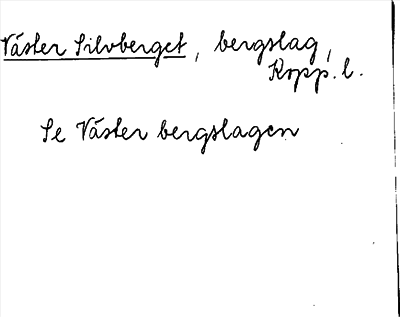 Väster Silvberget, bergslag,
Kopp. l.
Se Väster bergslagen